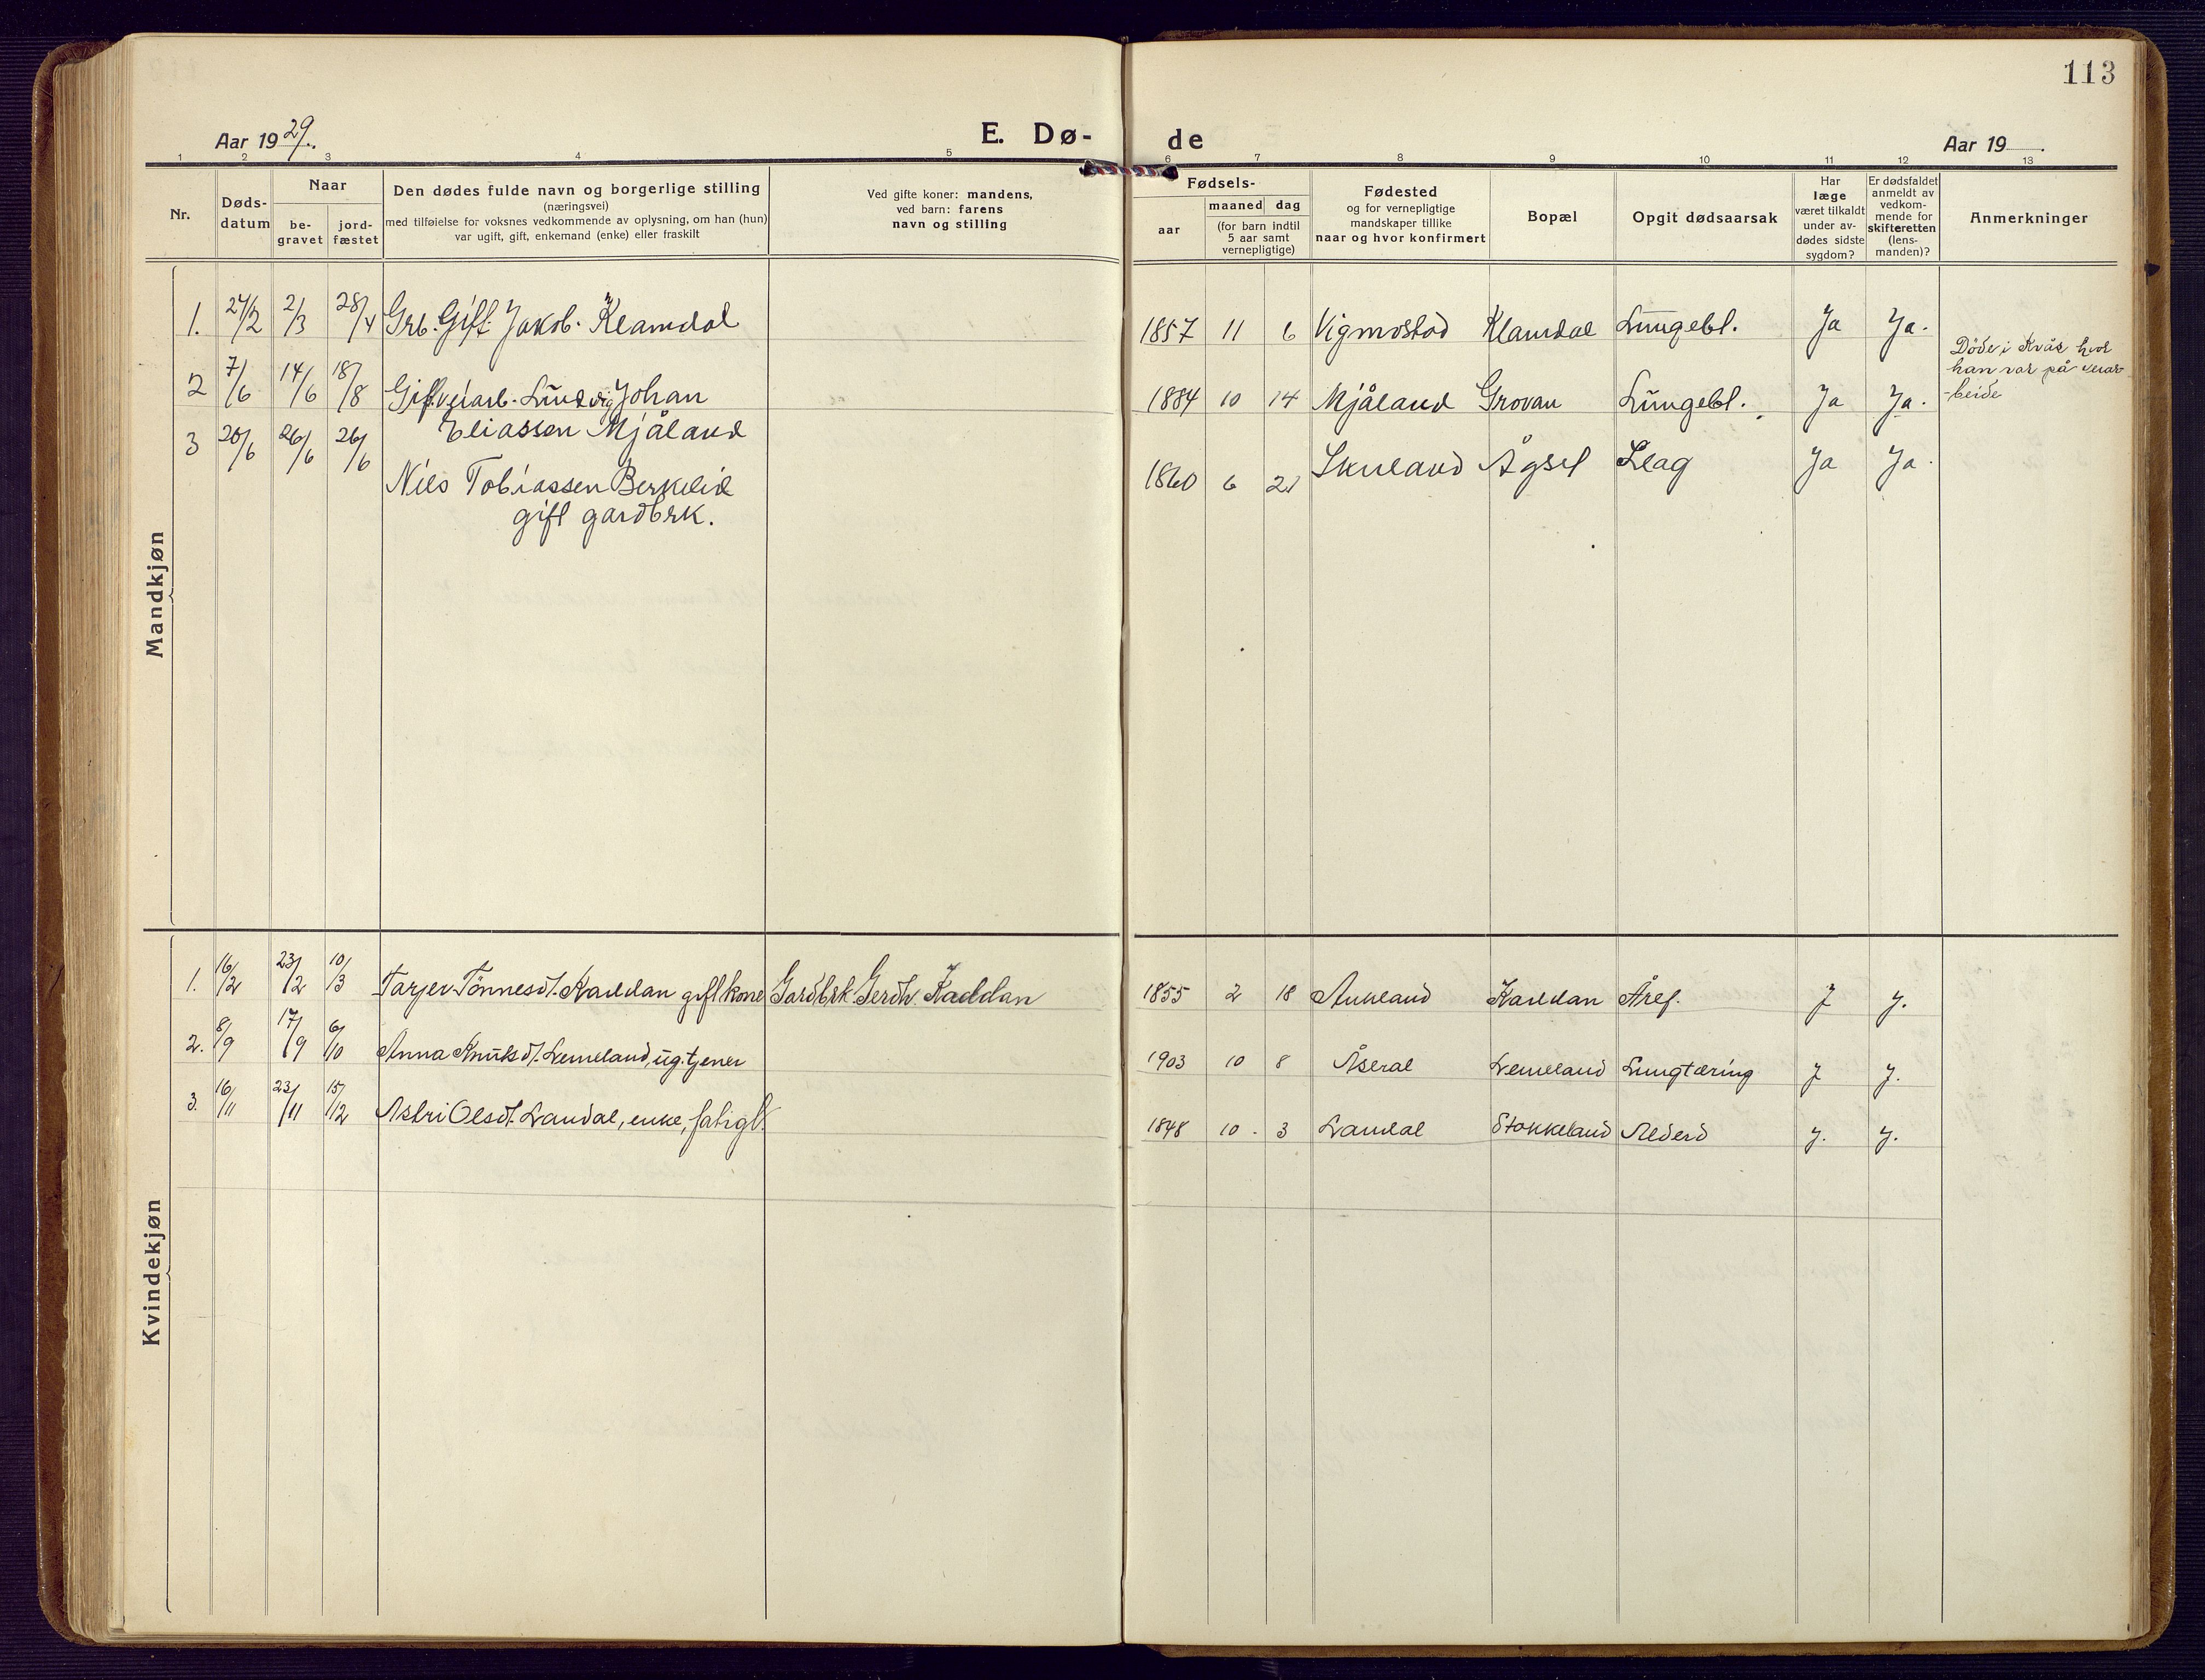 113
Aar 19 29.
E. Dø-
de
Aar 19
1 2 3 4 5 6 7 8 9 10 11 12 13
Nr.
Døds-
datum
Naar
be-
gravet
jord-
fæstet
Den dødes fulde navn og borgerlige stilling
(næringsvei)
med tilføielse for voksnes vedkommende av oplysning, om han (hun)
var ugift, gift, enkemand (enke) eller fraskilt
Ved gifte koner: mandens,
ved barn: farens
navn og stilling
Fødsels-
aar
maaned dag
(for barn indtil
5 aar samt
vernepligtige)
Fødested
og for vernepligtige
mandskaper tillike
naar og hvor konfirmert
Bopæl
Opgit dødsaarsak
Har
læge
været tilkaldt
under av-
dødes sidste
sygdom?
Er dødsfaldet
anmeldt av
vedkom-
mende for
skifteretten
(lens-
manden)?
Anmerkninger
Mandkjøn
1. 24/2 2/3 28/4 Grb. Gift Jakob Klamdal 1857 11 6 Vigmostad Klamdal Lungebt. Ja Ja.
2 7/6 14/6 18/8 Gift veiarb. Ludvig Johan
Eliassen Mjåland 1884 10 14 Mjåland Grovan Lungebt. Ja Ja.
Døde i Kvås hvor
han var på veiar-
beide
3 20/6 26/6 26/6 Nils Tobiassen Berkelid
gift gardbrk. 1860 6 21 Skuland Ågsel Slag Ja Ja.
Kvindekjøn
1. 16/2 23/2 10/3 Tarjer Tönnesdt. Kaddan gift kone Gardbrk. Kaddan 1855 2 18 Kaddan Åref. J J.
2. 8/9 17/9 6/10 Anna Knutsdt. Lemeland, ug. tjener 1903 10 8 Åseral Lemeland Lungtæring J J.
3. 16/11 23/11 15/12 Astri Olsdt. Laudal, enke, fatigl. 1848 10 3 Laudal Stokkeland Alderd J. J.